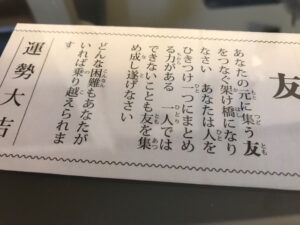 友
あなたの元に集う友
をつなぐ架け橋になり
なさい あなたは人を
ひきつけ一つにまとめ
る力がある 一人では
できないことも友を集
め成し遂げなさい
どんな困難もあなたが
いれば乗り越えられま
す
運勢大吉